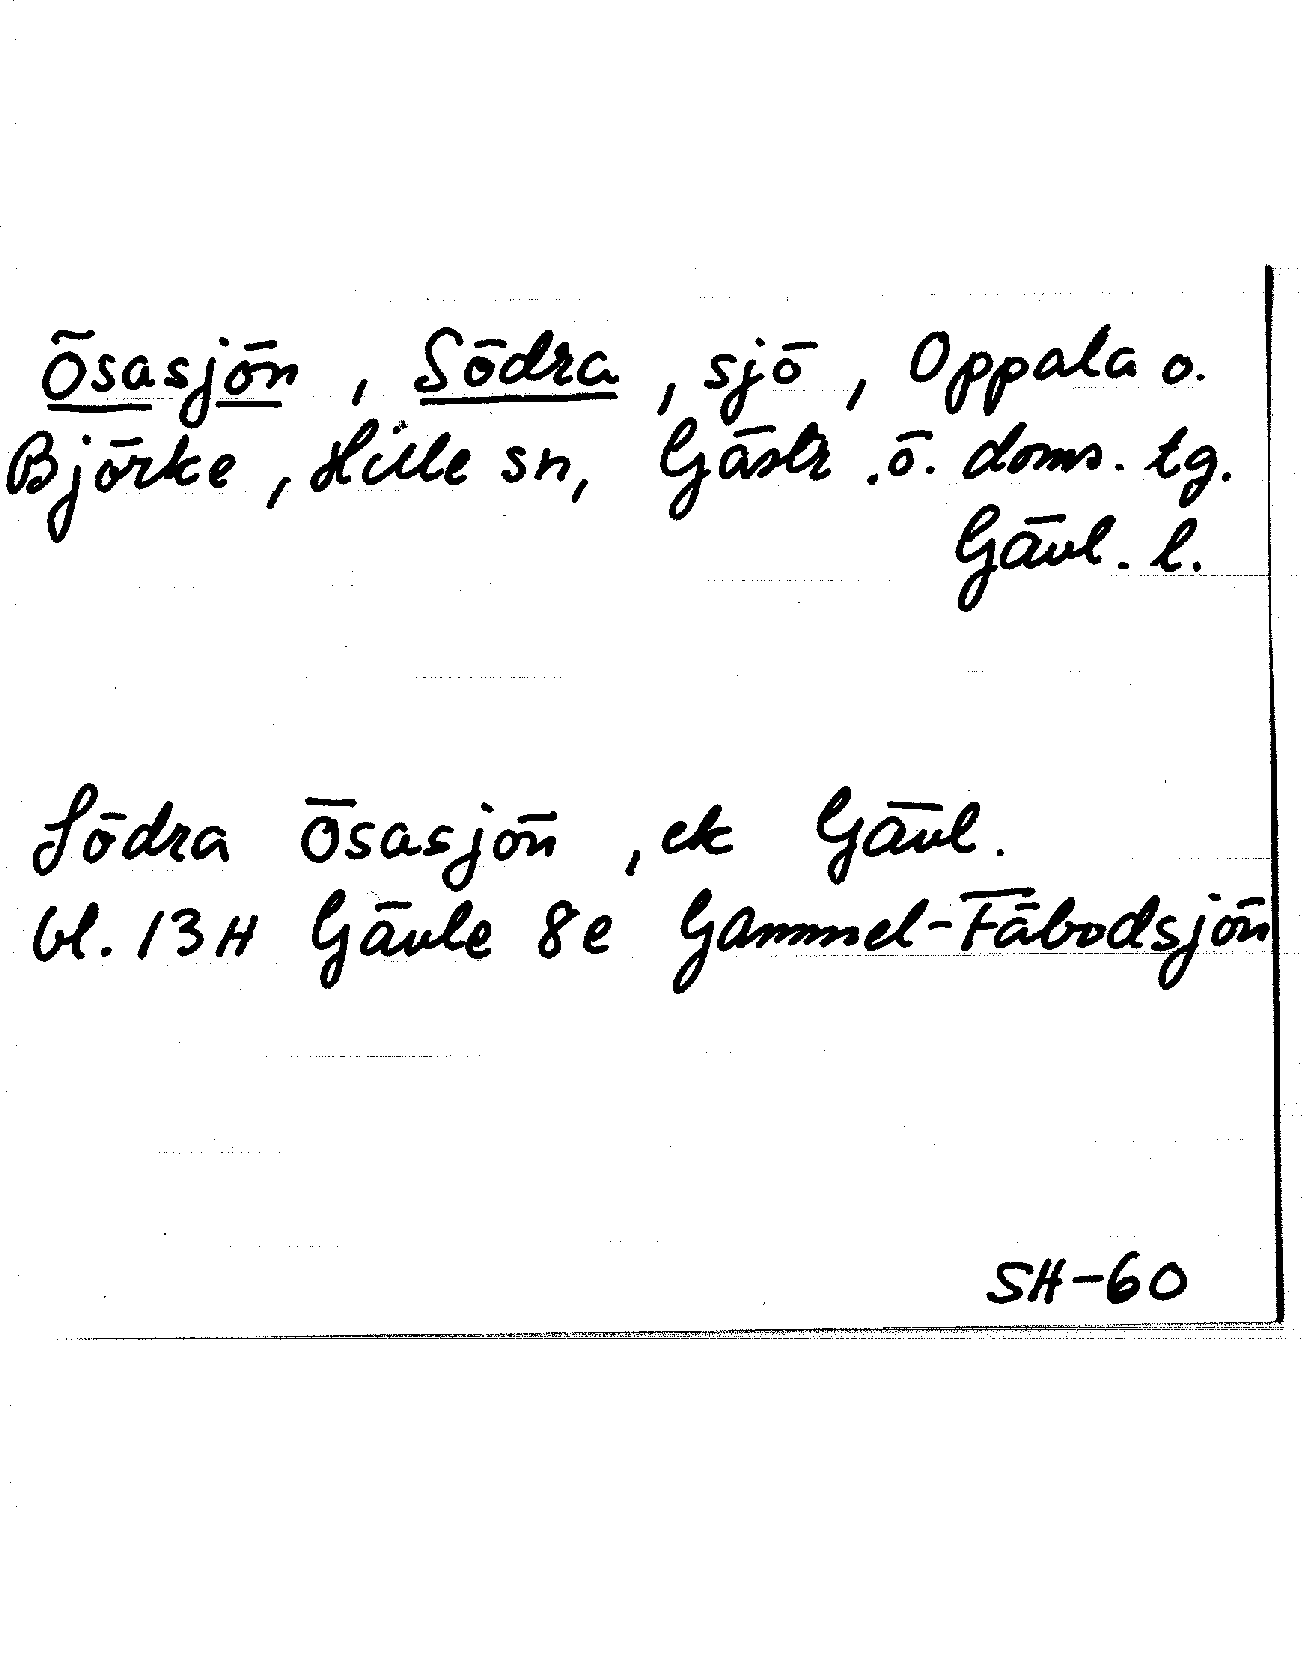 Ösasjön, Södra, sjö, Oppala o.
Björke, Hille sn, Gästr.ö. doms. tg.
Gävl. l.
Södra Ösasjön, ek Gävl.
bl. 13H Gävle 8e Gammel-Fäbodsjön
SH-60